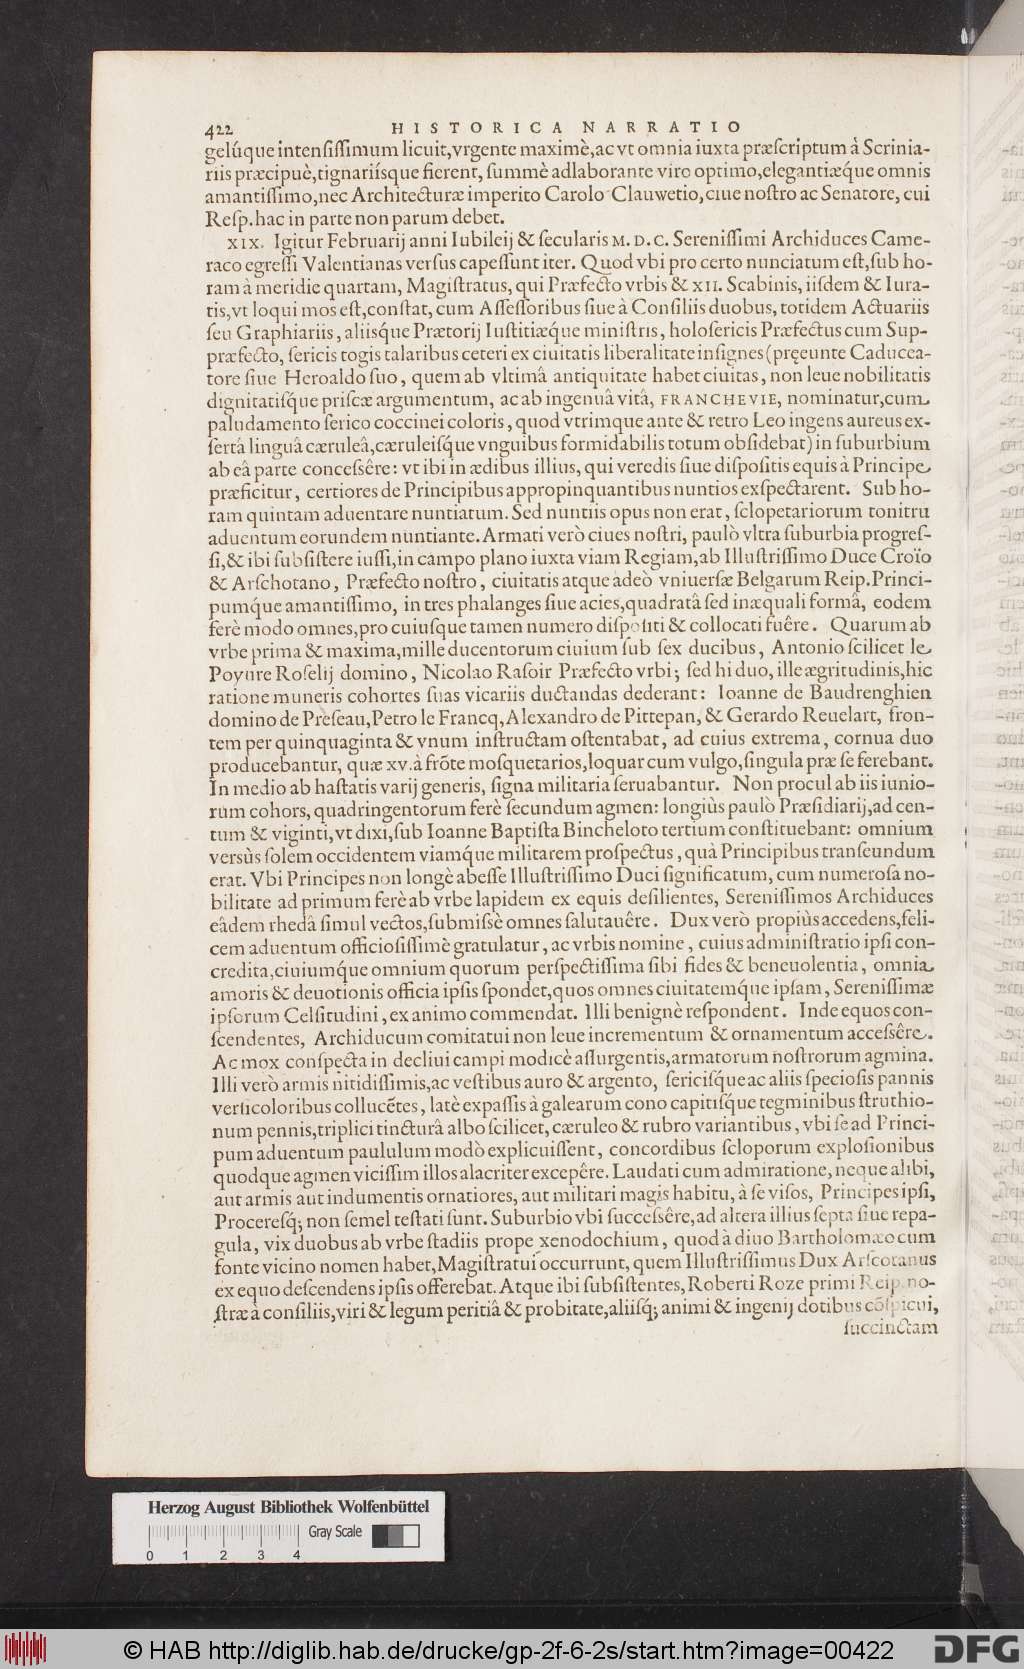 422 HISTORICA NARRATIO
gelúque intensiſſimum licuit, vrgente maximè, ac vt omnia iuxta præſcriptum à Scrinia-
riis præcipuè, tignariíſque fierent, ſummè adlaborante viro optimo, elegantiæque omnis
amantiſſimo, nec Architecturæ imperito Carolo Clauwetio, ciue noſtro ac Senatore, cui
Reſp. hac in parte non parum debet.
XIX. Igitur Februarij anni Iubileij & ſecularis M. D. C. Sereniſſimi Archiduces Came-
raco egreſſi Valentianas verſus capeſſunt iter. Quod vbi pro certo nunciatum eſt, ſub ho-
ram à meridie quartam, Magiſtratus, qui Præfecto vrbis & XII. Scabinis, iiſdem & Iura-
tis, vt loqui mos eſt, conſtat, cum Aſſeſſoribus ſiue à Conſiliis duobus, totidem Actuariis
ſeu Graphiariis, aliiſque Prætorij Iuſtitiæque miniſtris, holoſericis Præfectus cum Sup-
præfecto, ſericis togis talaribus ceteri ex ciuitatis liberalitate inſignes (pręeunte Caducea-
tore ſiue Heroaldo ſuo, quem ab vltimâ antiquitate habet ciuitas, non leue nobilitatis
dignitatiſque priſcæ argumentum, ac ab ingenuâ vitâ, FRANCHEVIE, nominatur, cum
paludamento ſerico coccinei coloris, quod vtrimque ante & retro Leo ingens aureus ex-
ſertâ linguâ cæruleâ, cæruleiſque vnguibus formidabilis totum obſidebat) in ſuburbium
ab eâ parte conceſsêre: vt ibi in ædibus illius, qui veredis ſiue diſpoſitis equis à Principe
præficitur, certiores de Principibus appropinquantibus nuntios exſpectarent. Sub ho-
ram quintam aduentare nuntiatum. Sed nuntiis opus non erat, ſclopetariorum tonitru
aduentum eorundem nuntiante. Armati verò ciues noſtri, paulò vltra ſuburbia progreſ-
ſi, & ibi ſubſiſtere iuſſi, in campo plano iuxta viam Regiam, ab Illuſtriſſimo Duce Croïo
& Arſchotano, Præfecto noſtro, ciuitatis atque adeò vniuerſæ Belgarum Reip. Princi-
pumque amantiſſimo, in tres phalanges ſiue acies, quadratâ ſed inæquali formâ, eodem
ferè modo omnes, pro cuiuſque tamen numero diſpoſiti & collocati fuêre. Quarum ab
vrbe prima & maxima, mille ducentorum ciuium ſub ſex ducibus, Antonio ſcilicet le
Poyure Roſelij domino, Nicolao Raſoir Præfecto vrbi; ſed hi duo, ille ægritudinis, hic
ratione muneris cohortes ſuas vicariis ductandas dederant: Ioanne de Baudrenghien
domino de Prèſeau, Petro le Francq, Alexandro de Pittepan, & Gerardo Reuelart, fron-
tem per quinquaginta & vnum inſtructam oſtentabat, ad cuius extrema, cornua duo
producebantur, quæ XV. à frōte moſquetarios, loquar cum vulgo, ſingula præ ſe ferebant.
In medio ab haſtatis varij generis, ſigna militaria ſeruabantur. Non procul ab iis iunio-
rum cohors, quadringentorum ferè ſecundum agmen: longiùs paulò Præſidiarij, ad cen-
tum & viginti, vt dixi, ſub Ioanne Baptiſta Bincheloto tertium conſtituebant: omnium
verſùs ſolem occidentem viamque militarem proſpectus, quà Principibus tranſeundum
erat. Vbi Principes non longè abeſſe Illuſtriſſimo Duci ſignificatum, cum numeroſa no-
bilitate ad primum ferè ab vrbe lapidem ex equis deſilientes, Sereniſſimos Archiduces
eâdem rhedâ ſimul vectos, ſubmiſsè omnes ſalutauêre. Dux verò propiùs accedens, feli-
cem aduentum officioſiſſimè gratulatur, ac vrbis nomine, cuius adminiſtratio ipſi con-
credita, ciuiumque omnium quorum perſpectiſſima ſibi fides & beneuolentia, omnia
amoris & deuotionis officia ipſis ſpondet, quos omnes ciuitatemque ipſam, Sereniſſimæ
ipſorum Celſitudini, ex animo commendat. Illi benignè reſpondent. Inde equos con-
ſcendentes, Archiducum comitatui non leue incrementum & ornamentum acceſsêre.
Ac mox conſpecta in decliui campi modicè aſſurgentis, armatorum noſtrorum agmina.
Illi verò armis nitidiſſimis, ac veſtibus auro & argento, ſericiſque ac aliis ſpecioſis pannis
verſicoloribus collucētes, latè expaſſis à galearum cono capitiſque tegminibus ſtruthio-
num pennis, triplici tincturâ albo ſcilicet, cæruleo & rubro variantibus, vbi ſe ad Princi-
pum aduentum paululum modò explicuiſſent, concordibus ſcloporum exploſionibus
quodque agmen viciſſim illos alacriter excepêre. Laudati cum admiratione, neque alibi,
aut armis aut indumentis ornatiores, aut militari magis habitu, à ſe viſos, Principes ipſi,
Procereſq; non ſemel teſtati ſunt. Suburbio vbi ſucceſsêre, ad altera illius ſepta ſiue repa-
gula, vix duobus ab vrbe ſtadiis prope xenodochium, quod à diuo Bartholomæo cum
fonte vicino nomen habet, Magiſtratui occurrunt, quem Illuſtriſſimus Dux Arſcotanus
ex equo deſcendens ipſis offerebat. Atque ibi ſubſiſtentes, Roberti Roze primi Reip. no-
ſtræ à conſiliis, viri & legum peritiâ & probitate, aliiſq; animi & ingenij dotibus cōſpicui,
ſuccinctam
Herzog August Bibliothek Wolfenbüttel
Gray Scale
0 1 2 3 4
© HAB http://diglib.hab.de/drucke/gp-2f-6-2s/start.htm?image=00422
DFG